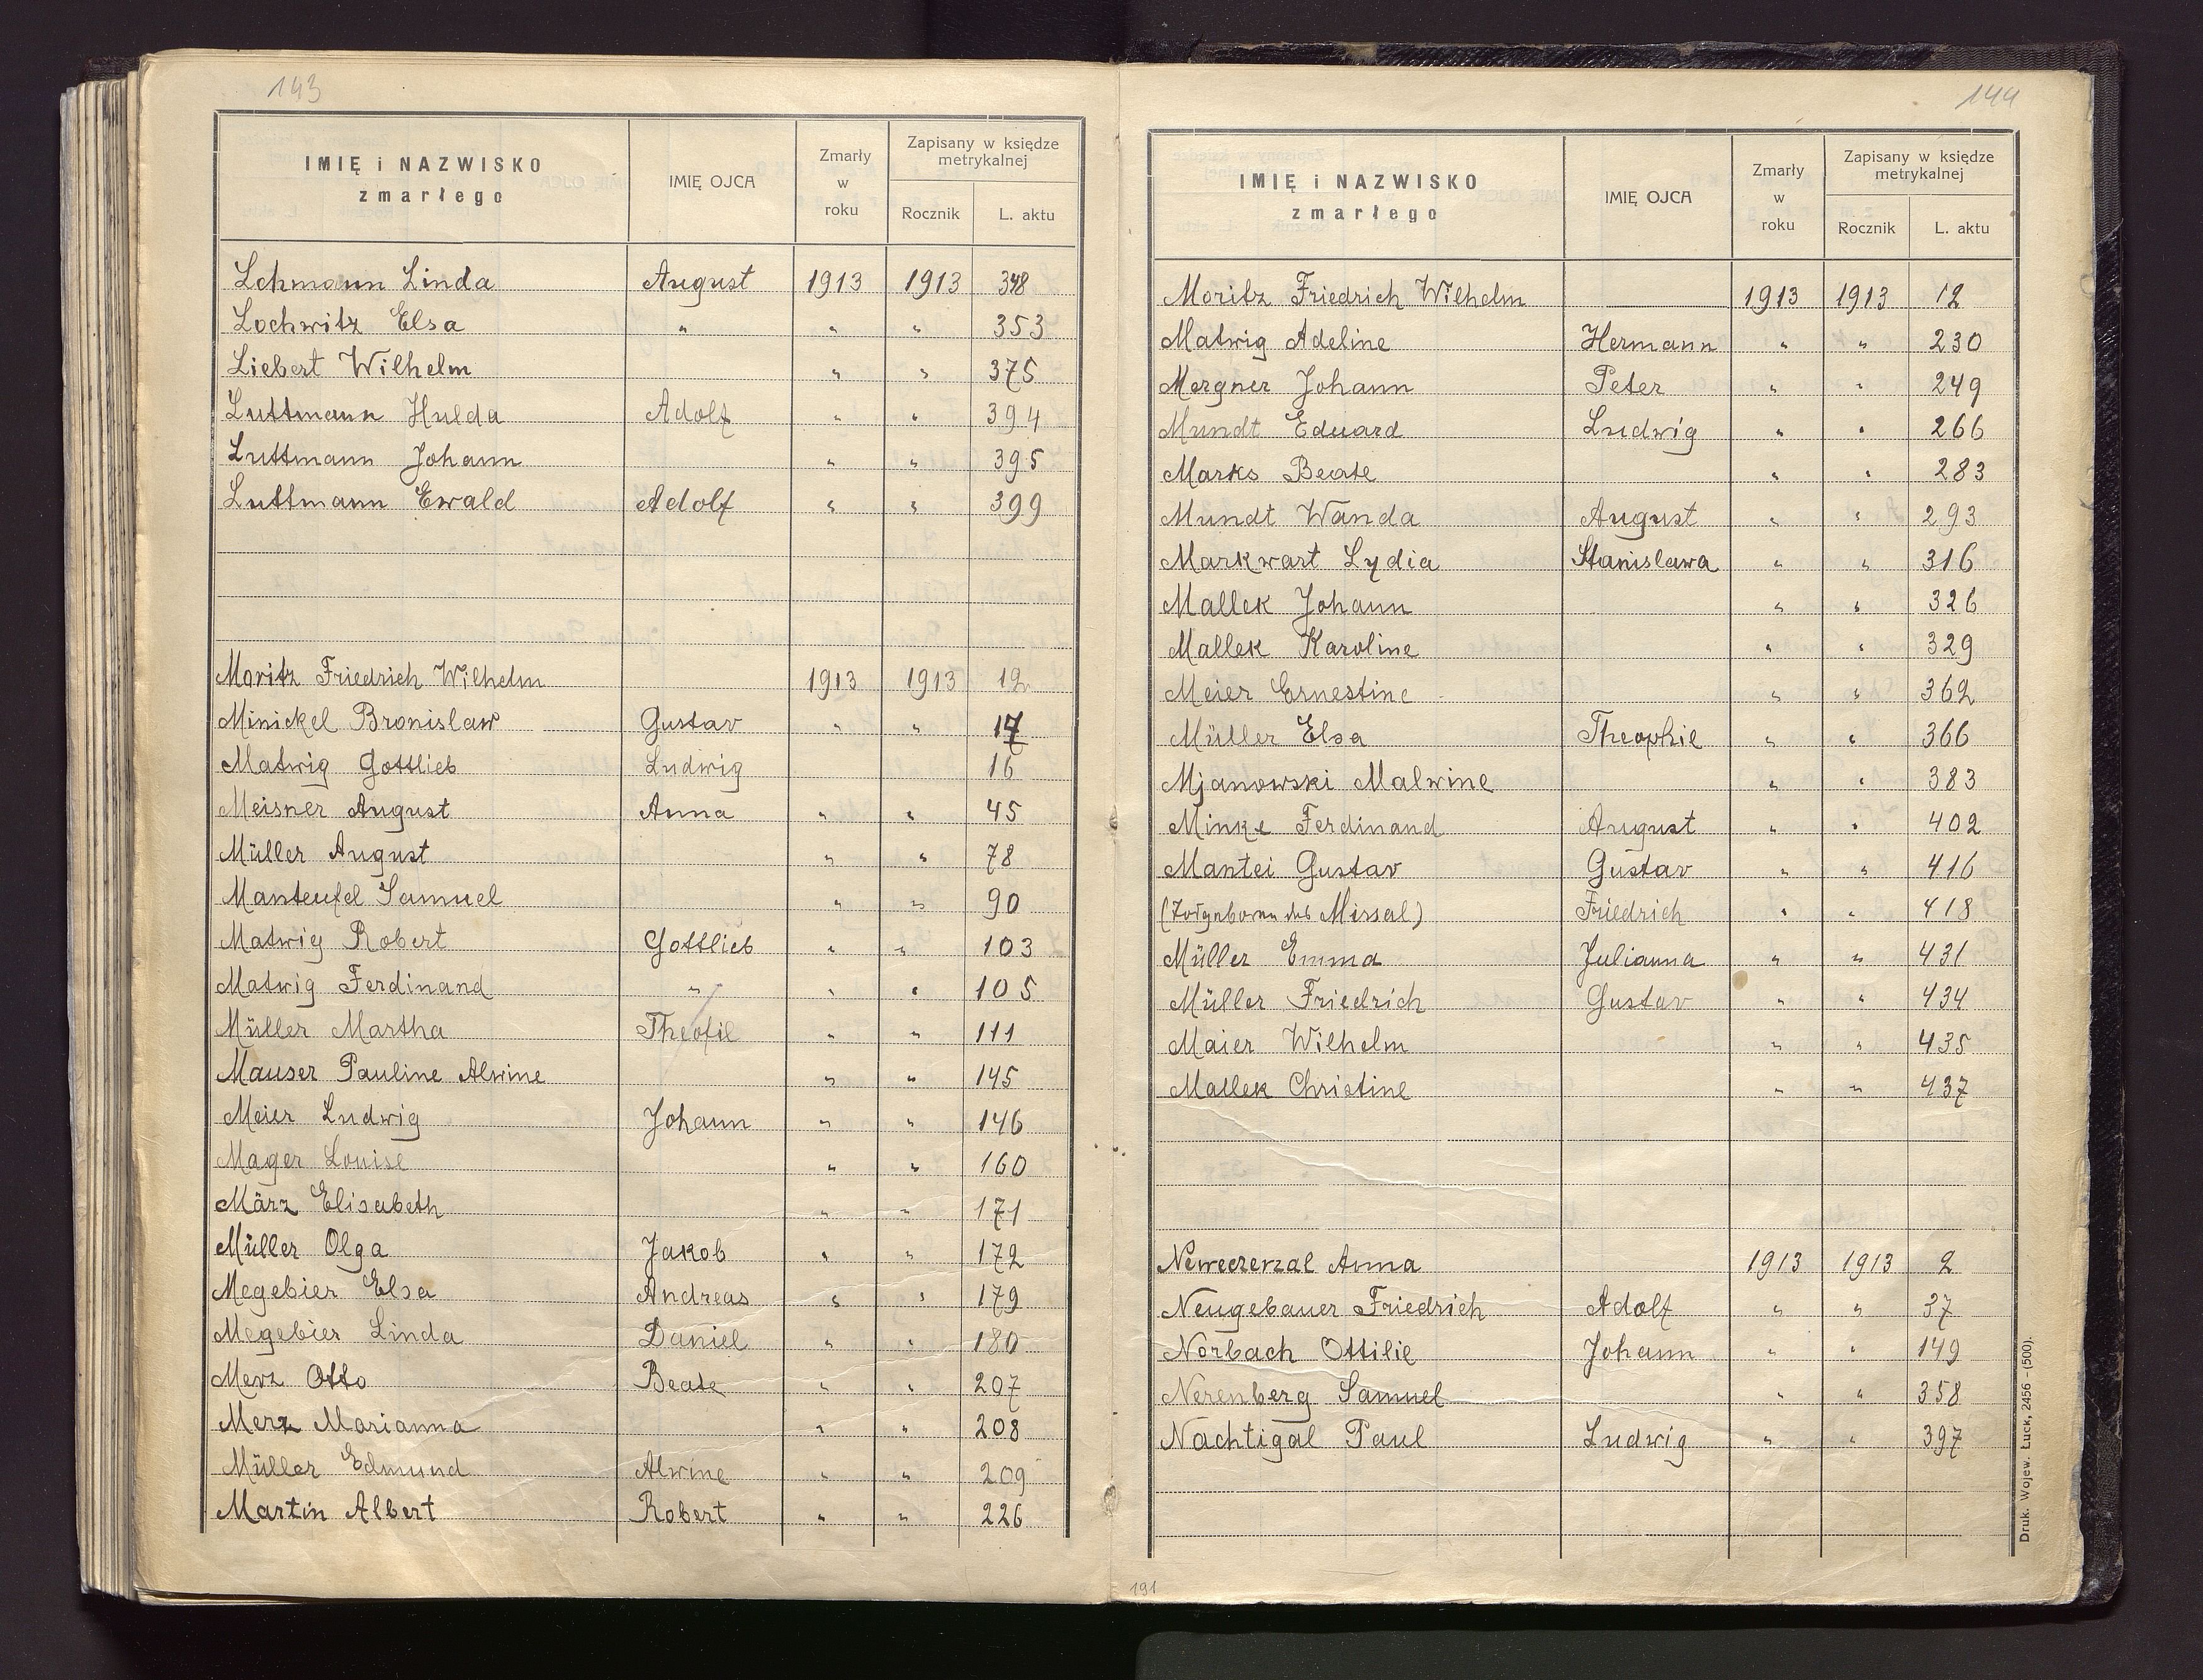 143
IMIĘ i NAZWISKO zmarłego IMIĘ OJCA Zmarły w roku Zapisany w księdze metrykalnej Rocznik L. aktu
Lehmann Linda August 1913 1913 348
Lochwitz Elsa " " " 353
Liebert Wilhelm " " 375
Luttmann Hulda Adolf " " 394
Luttmann Johann " " 395
Luttmann Ewald Adolf " " 399
Moritz Friedrich Wilhelm 1913 1913 12
Minickel Bronislaw Gustav " " 17
Matwig Gottlieb Ludwig 16
Meisner August Anna " " 45
Müller August " " 78
Manteufel Samuel " " 90
Matwig Robert Gottlieb " " 103
Matwig Ferdinand " " " 105
Müller Martha Theofil " " 111
Mauser Pauline Alwine " " 145
Meier Ludwig Johann " " 146
Mager Louise " " 160
März Elisabeth " " 171
Müller Olga Jakob " " 172
Megebier Elsa Andreas " " 179
Megebier Linda Daniel " " 180
Merz Otto Beate " " 207
Merz Marianna " " 208
Müller Edmund Alwine " " 209
Martin Albert Robert " " 226
144
IMIĘ i NAZWISKO zmarłego IMIĘ OJCA Zmarły w roku Zapisany w księdze metrykalnej Rocznik L. aktu
Moritz Friedrich Wilhelm 1913 1913 12
Matwig Adeline Hermann " " 230
Mergner Johann Peter " " 249
Mundt Eduard Ludwig " " 266
Marks Beate " " 283
Mundt Wanda August " " 293
Markwart Lydia Stanislawa " " 316
Mallek Johann " " 326
Mallek Karoline " " 329
Meier Ernestine " " 362
Müller Elsa Theophil " " 366
Mjanowski Malwine " " 383
Minke Ferdinand August " " 402
Mantei Gustav Gustav " " 416
Missal) Friedrich " " 418
Müller Emma Julianna " " 431
Müller Friedrich Gustav " " 434
Maier Wilhelm " " 435
Mallek Christine " " 437
Anna 1913 1913 2
Neugebauer Friedrich Adolf " " 37
Norbach Ottilie Johann " " 149
Nerenberg Samuel " " 358
Nachtigal Paul Ludwig " " 397
Druk. Wojew. Łuck, 2456 - (500).
191